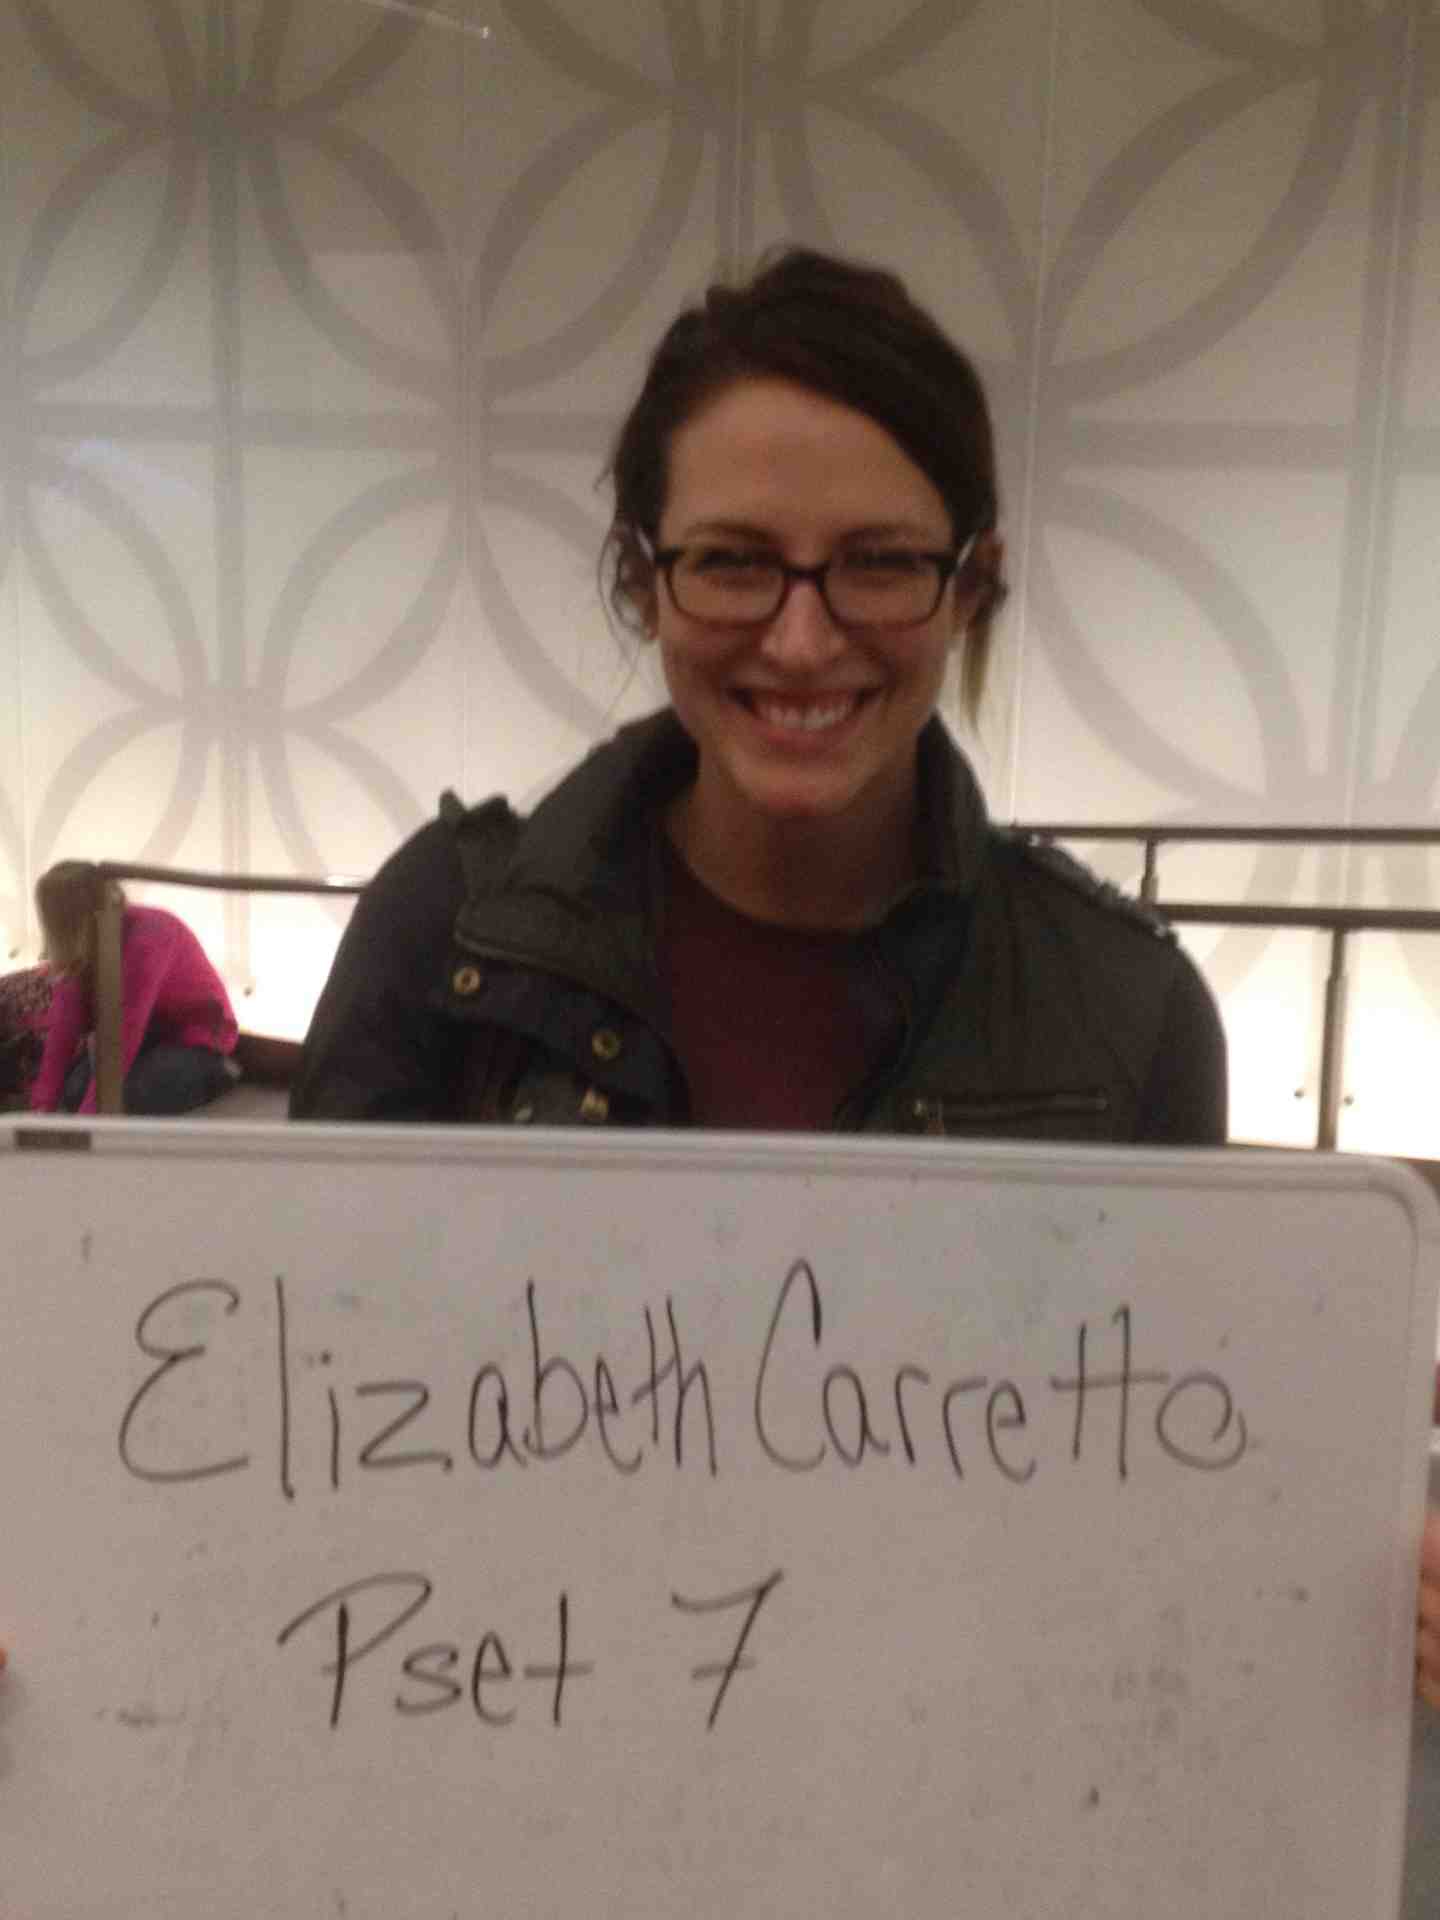 Elizabeth Carretto
Pset 7